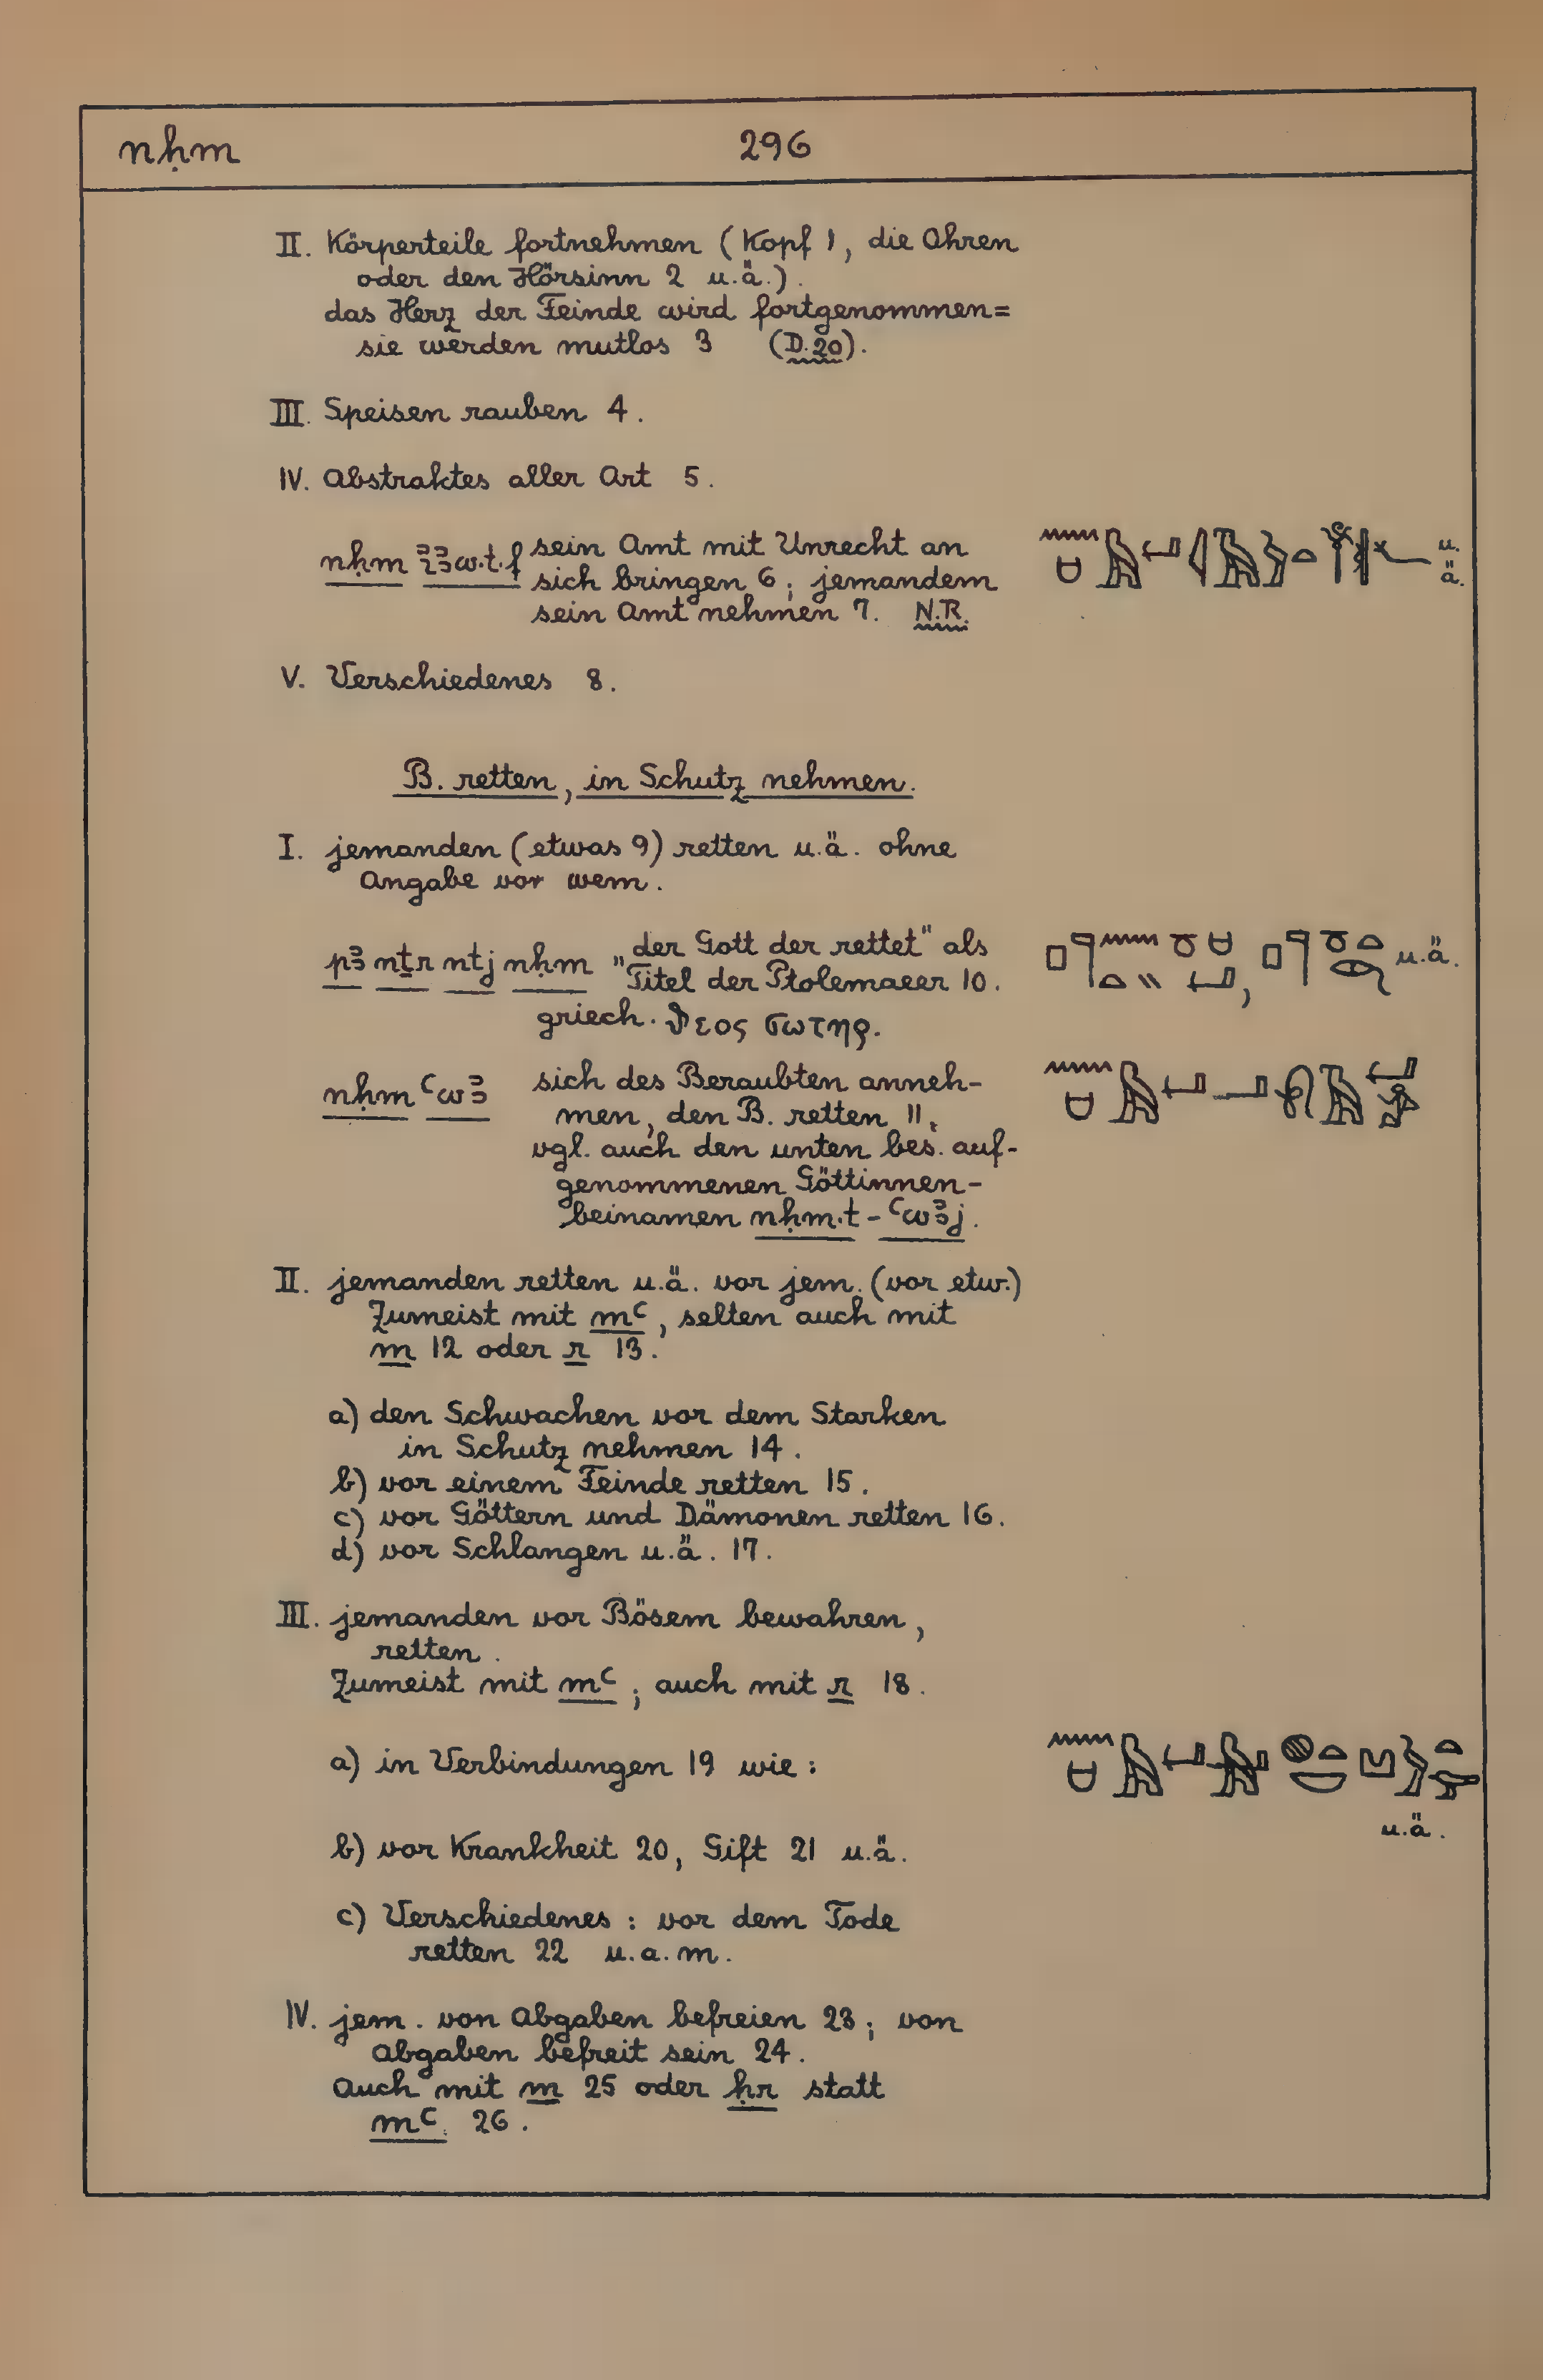 nḥm 296
II. Körperteile fortnehmen (Kopf 1, die Ohren
oder den Hörsinn 2 u.ä.).
das Herz der Feinde wird fortgenommen=
sie werden mutlos 3 (D.20).
III. Speisen rauben 4.
IV. Abstraktes aller Art 5.
nḥm i̓ꜣw.t.f sein Amt mit Unrecht an
sich bringen 6; jemandem
sein Amt nehmen 7. N.R.
u.ä.
V. Verschiedenes 8.
B. retten, in Schutz nehmen.
I. jemanden (etwas 9) retten u.ä. ohne
Angabe vor wem.
pꜣ nṯr ntj nḥm „der Gott der rettet" als
Titel der Ptolemaeer 10.
u.ä.
griech. ϑεος σωτηρ.
nḥm ꜥwꜣ sich des Beraubten anneh-
men, den B. retten 11,
vgl. auch den unten bes. auf-
genommenen Göttinnen-
beinamen nḥm.t-ꜥwꜣj.
II. jemanden retten u.ä. vor jem. (vor etw.)
Zumeist mit mꜥ, selten auch mit
m 12 oder r 13.
a) den Schwachen vor dem Starken
in Schutz nehmen 14.
b) vor einem Feinde retten 15.
c) vor Göttern und Dämonen retten 16.
d) vor Schlangen u.ä. 17.
III. jemanden vor Bösem bewahren,
retten.
Zumeist mit mꜥ; auch mit r 18.
a) in Verbindungen 19 wie:
u.ä.
b) vor Krankheit 20, Gift 21 u.ä.
c) Verschiedenes: vor dem Tode
retten 22 u.a.m.
IV. jem. von Abgaben befreien 23; von
Abgaben befreit sein 24.
Auch mit m 25 oder ḥr statt
mꜥ. 26.